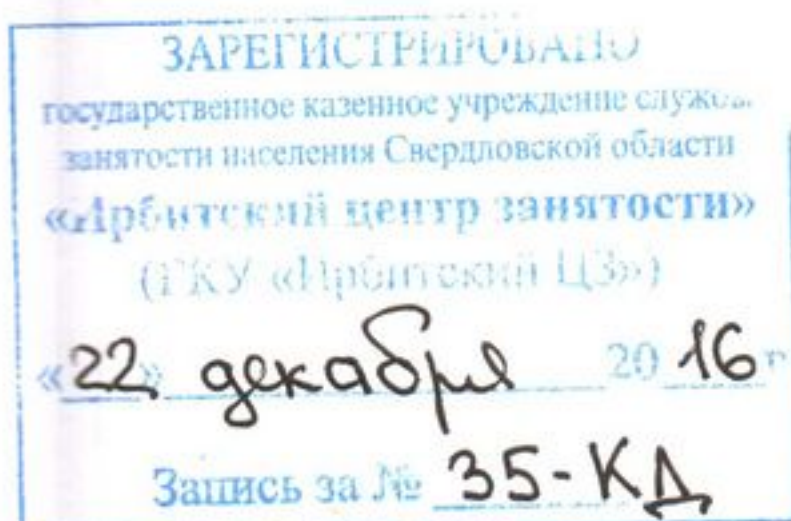 ЗАРЕГИСТРИРОВАНО
государственное казенное учреждение службы
занятости населения Свердловской области
«Ирбитский центр занятости»
(ГКУ «Ирбитский ЦЗ»)
«22» декабря 2016 г
Запись за № 35-КД